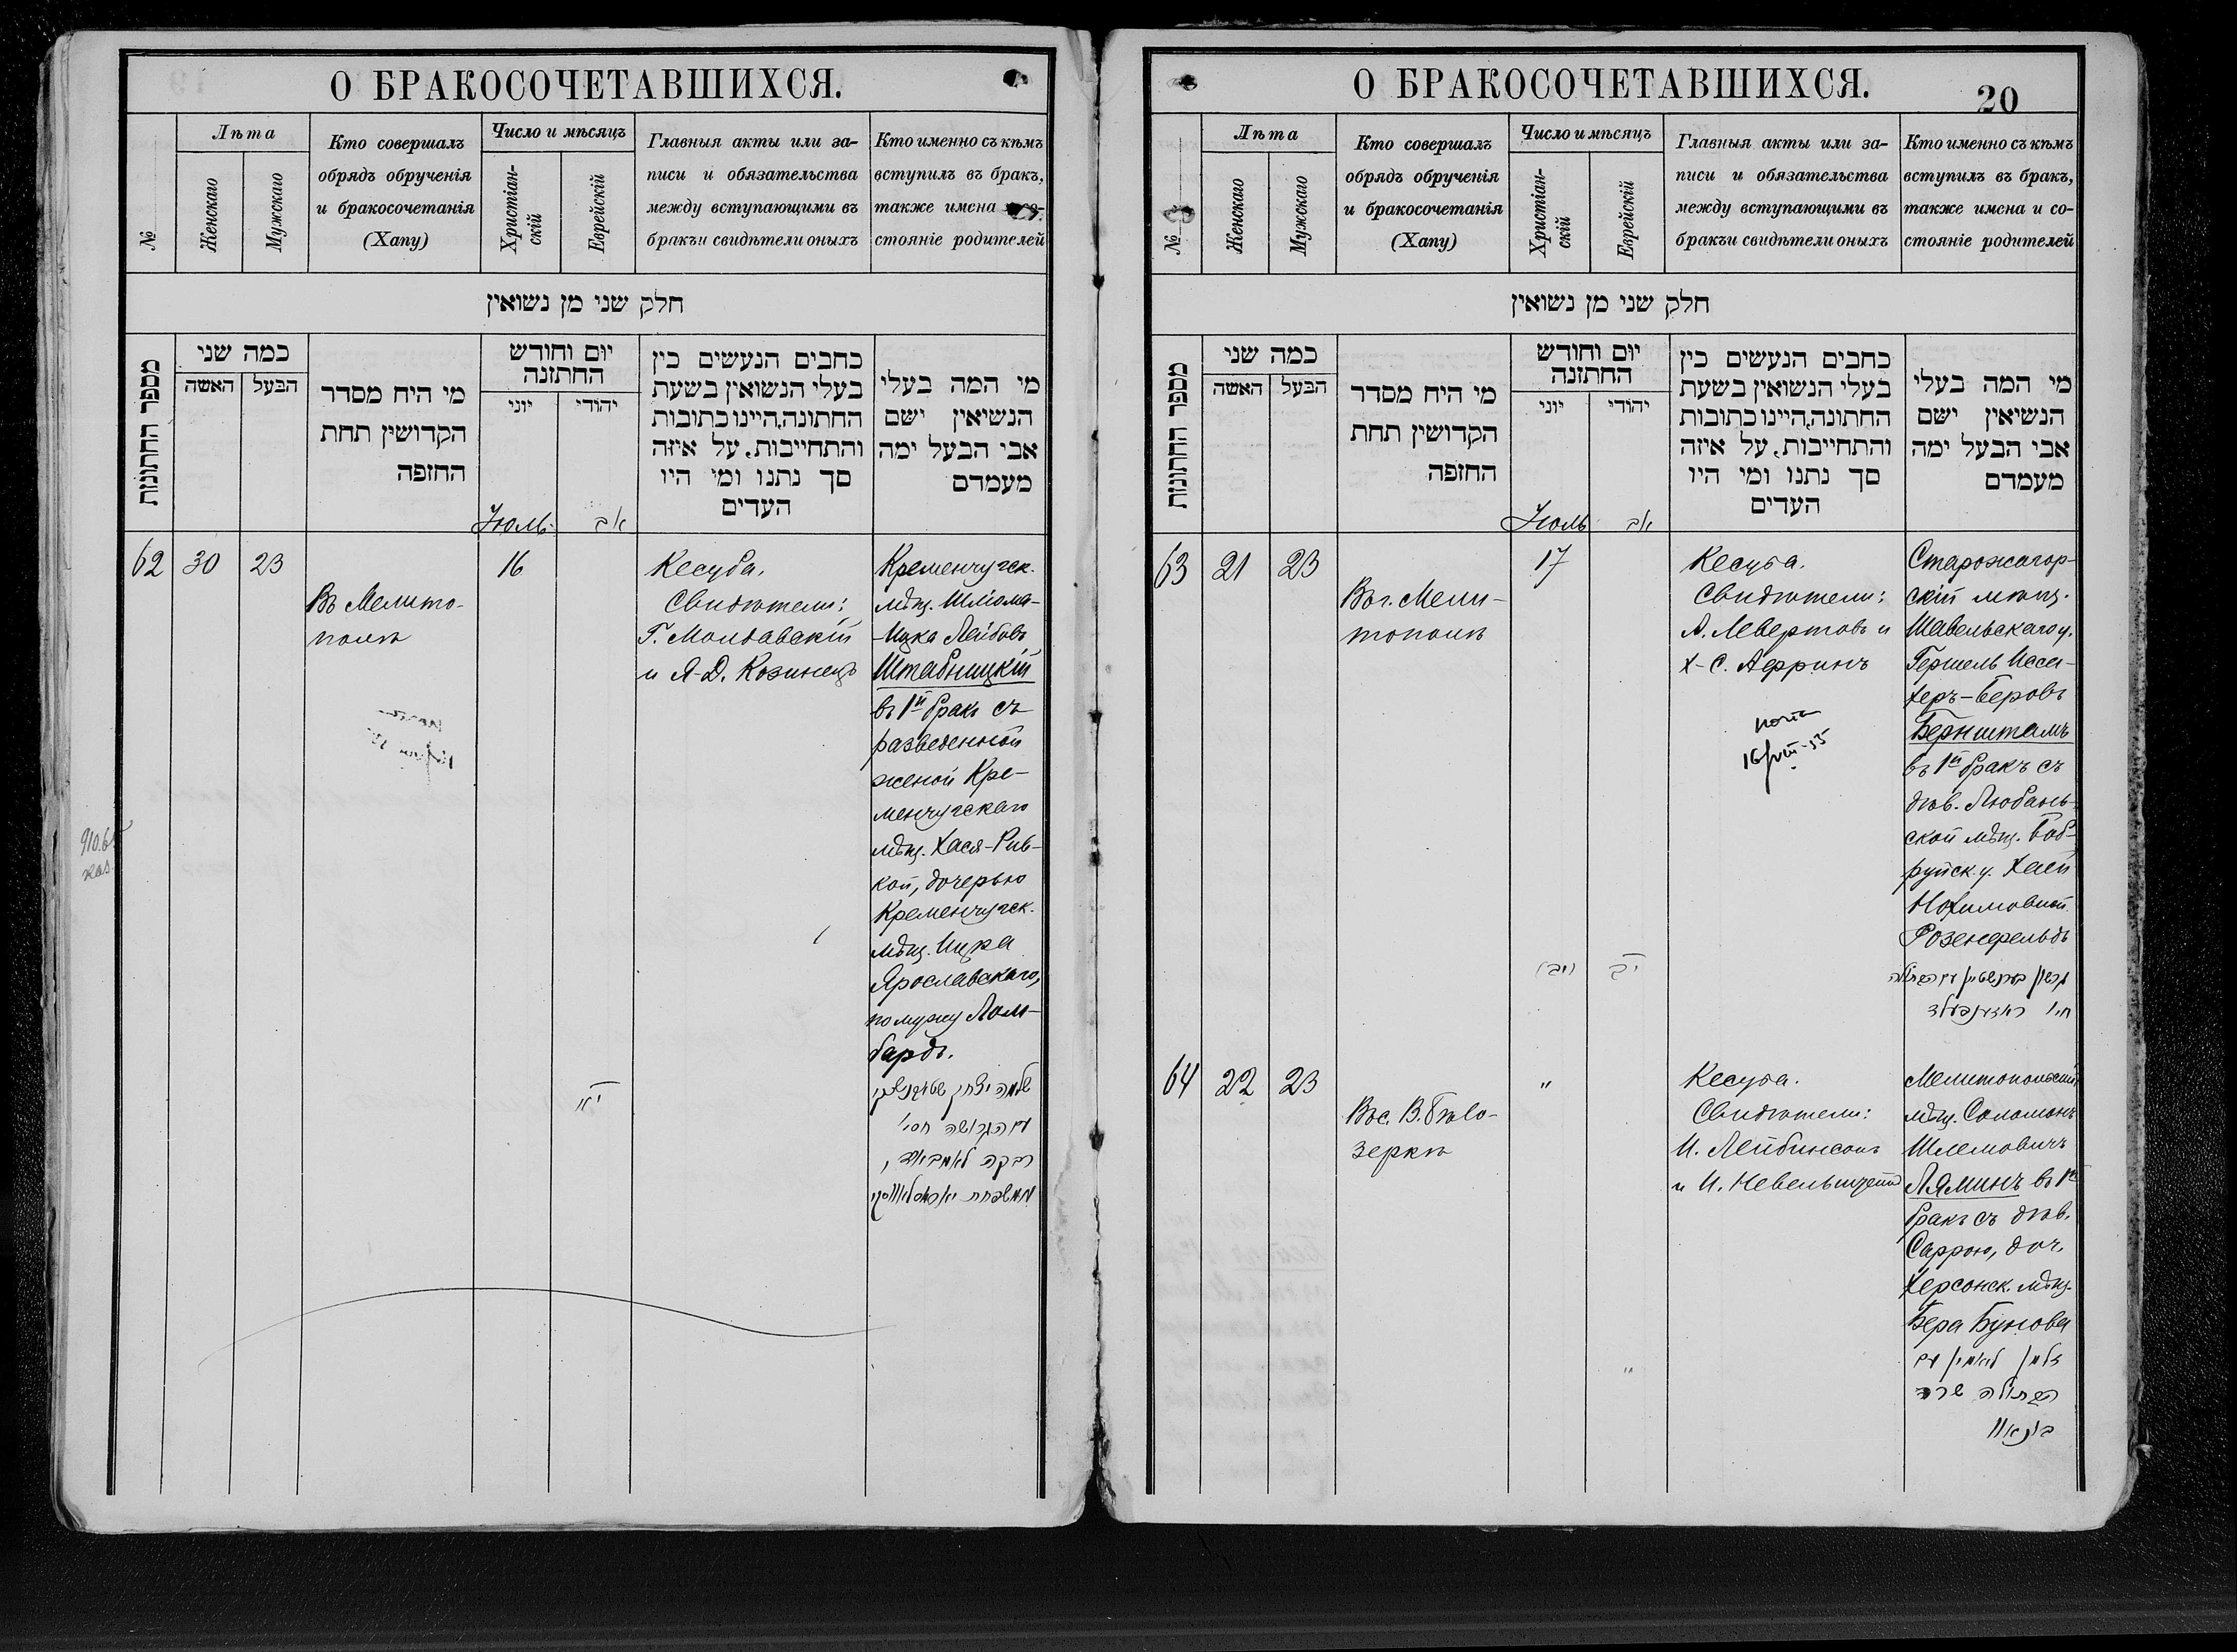 О БРАКОСОЧЕТАВШИХСЯ.
№
Лѣта
Женскаго
Мужскаго
Кто совершалъ
обрядъ обрученія
и бракосочетанія
(Хапу)
Число и мѣсяцъ
Христіан-
скій
Еврейскій
Главныя акты или за-
писи и обязательства
между вступающими въ
бракъи свидѣтели оныхъ
Кто именно съ кѣмъ
вступилъ въ бракъ,
также имена
стояніе родителей
חלק שני מן נשואין
מספר החתונות
כמה שני
האשה
הבעל
מי היח מסדר
הקדושין תחת
החופה
יום וחודש
החתונה
יוני
יהודי
כחבים הנעשים כין
בעלי הנשואין בשעת
החתונה,היינו כתובות
והתחייבות, על איזה
סך נתנו ומי היו
העדים
מי המה בעלי
הנשיאין ישם
אבי הבעל ימה
מעמדם
Іюль
אב
62
30
23
Въ Мелито-
полѣ
16
יא
Кесуба.
Свидѣтели:
Г. Молдавскій
и Я-Д. Козинецъ
Кременчугск.
мѣщ. Шлiома-
-Ицка Лейбовъ
Штабницкій
въ 1й бракъ съ
разведенной
женой Кре-
менчугскаго
мѣщ. Хася-Рив-
кой, дочерью
Кременчугск.
мѣщ. Ицка
Ярославскаго,
по мужу Лом-
бардъ.
שלמה יצחק שטאבניצקי
עם הגרושה חסי'
רבקה לאמבארד,
ממשפחת יאראסלאווסקי
О БРАКОСОЧЕТАВШИХСЯ.
20
№
Лѣта
Женскаго
Мужскаго
Кто совершалъ
обрядъ обрученія
и бракосочетанія
(Хапу)
Число и мѣсяцъ
Христіан-
скій
Еврейскій
Главныя акты или за-
писи и обязательства
между вступающими въ
бракъи свидѣтели оныхъ
Кто именно съ кѣмъ
вступилъ въ бракъ,
также имена и со-
стояніе родителей
חלק שני מן נשואין
מספר החתונות
כמה שני
האשה
הבעל
מי היח מסדר
הקדושין תחת
החופה
יום וחודש
החתונה
יוני
יהודי
כחבים הנעשים כין
בעלי הנשואין בשעת
החתונה,היינו כתובות
והתחייבות, על איזה
סך נתנו ומי היו
העדים
מי המה בעלי
הנשיאין ישם
אבי הבעל ימה
מעמדם
Іюль
אב
63
21
23
Въ г. Мели-
тополѣ
17
(יב)
יב
Кесуба.
Свидѣтели:
А. Левертовъ и
Х-С. Аерринъ
16/VIII-55
Старожагор-
скій мѣщ.
Шавельскаго у.
Гершель Исса-
херъ-Беровъ
Бернштамъ
въ 1й бракъ съ
дѣв. Любань-
ской мѣщ. Боб-
руйск у. Хаей
Нохимовной
Розенфельдъ
64
22
23
Въ с. В. Бѣло-
зеркѣ
"
"
Кесуба.
Свидѣтели:
И. Лейбинсонъ
и И. Невельштейнъ
Мелитопольскій
мѣщ. Соломонъ
Шлемовичъ
Ляминъ въ 1й
бракъ съ дѣв.
Саррою, доч.
Херсонск. мѣщ.
Бера Бунова
זלמן לאמין עם
הבתולה שרה
בונאוו